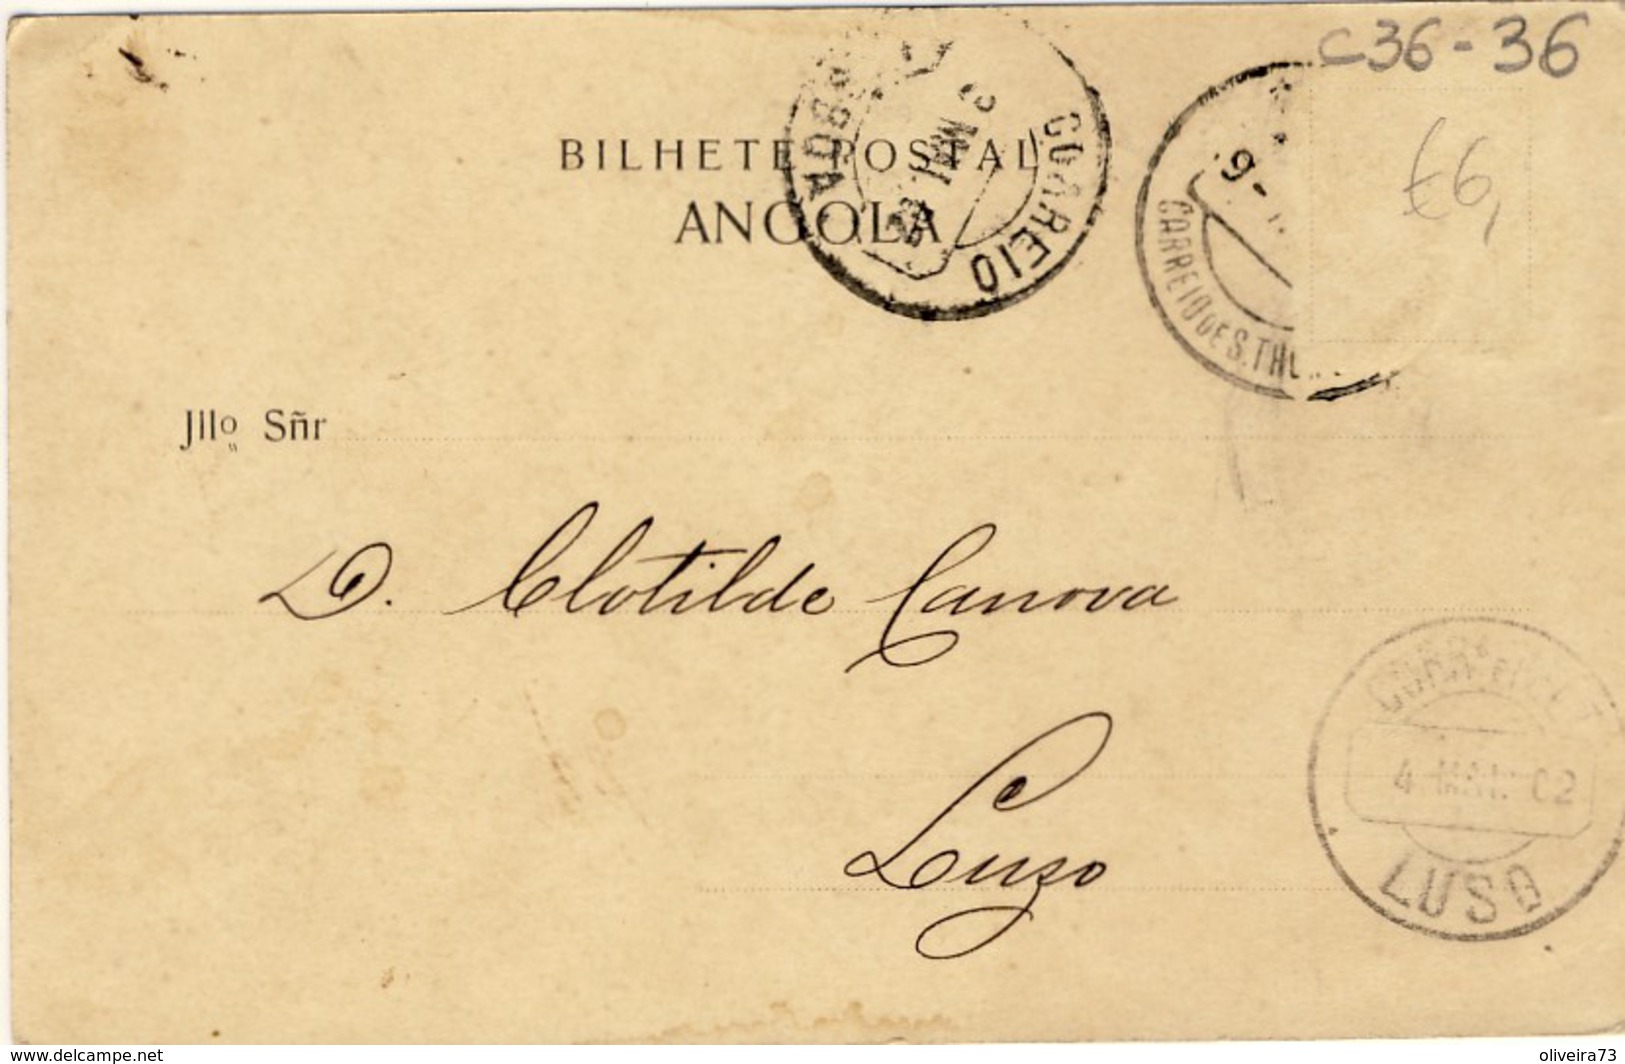 C36-36
£6,
BILHETE POSTAL
ANGOLA
CORREIO
LISBOA
9-
CORREIO DE S. THO
Jllo Sñr
D. Clotilde Canova
Luzo
4 MAI. 02
LUSO
www.delcampe.net
oliveira73